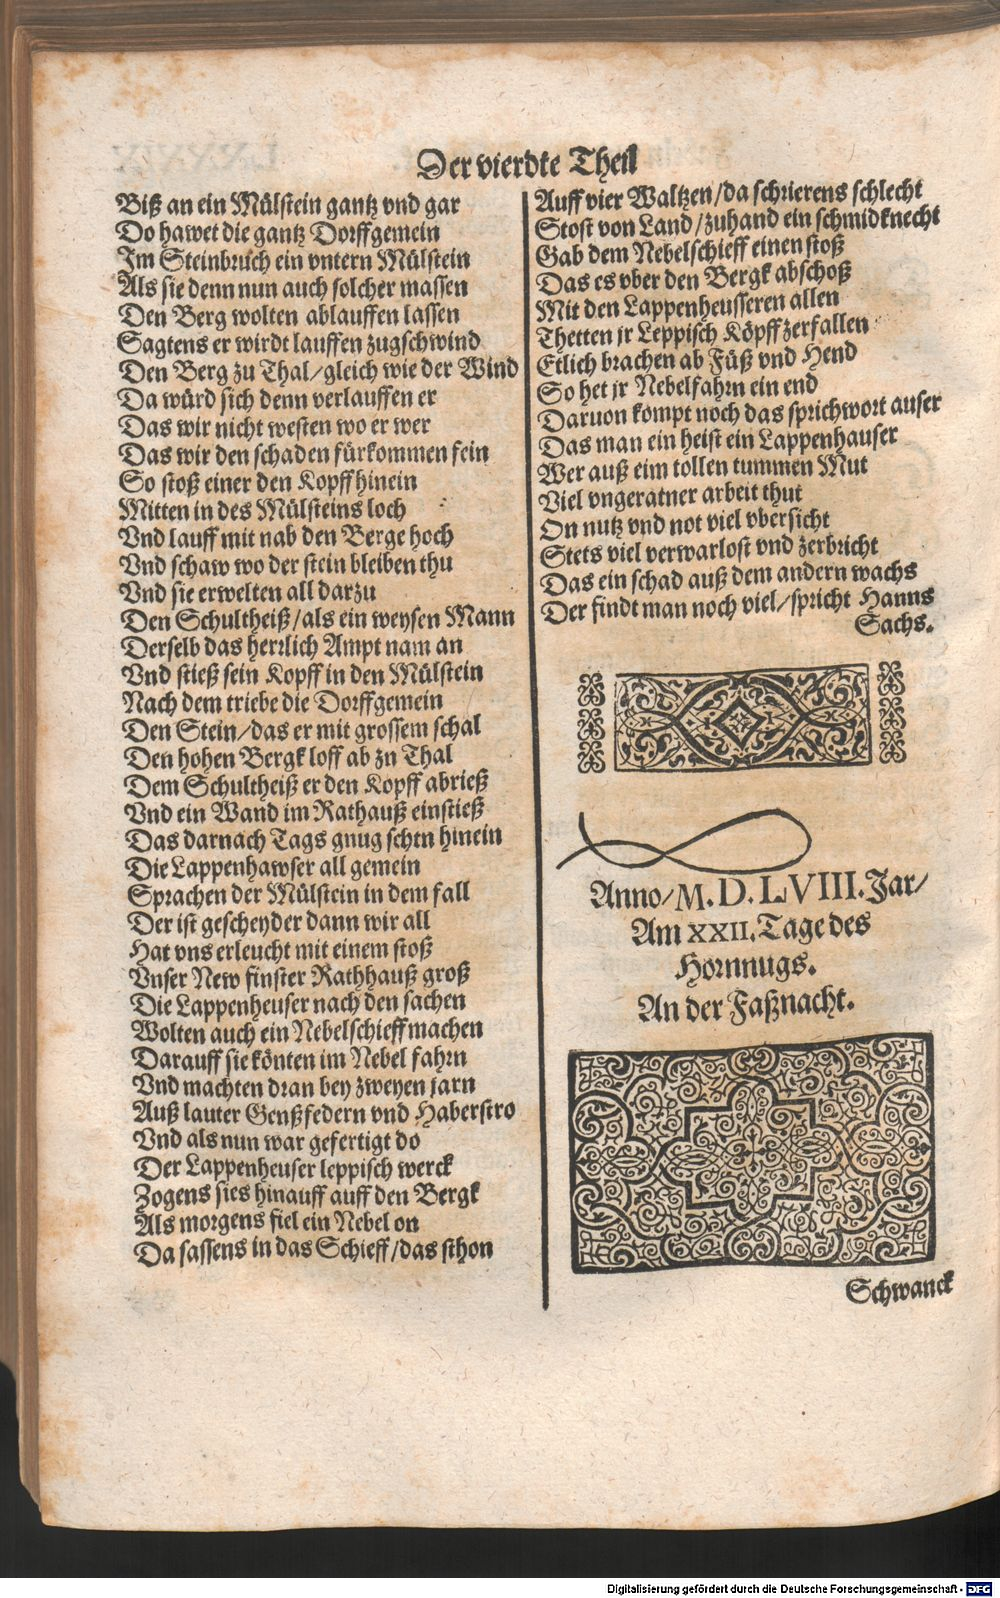 Der vierdte Theil
Biß an ein Mülstein gantz vnd gar
Do hawet die gantz Dorffgemein
Im Steinbruch ein vntern Mülstein
Als sie denn nun auch solcher massen
Den Berg wolten ablauffen lassen
Sagtens er wirdt lauffen zugschwind
Den Berg zu Thal/gleich wie der Wind
Da würd sich denn verlauffen er
Das wir nicht westen wo er wer
Das wir den schaden fürkommen fein
So stoß einer den Kopff hinein
Mitten in des Mülsteins loch
Vnd lauff mit nab den Berge hoch
Vnd schaw wo der stein bleiben thu
Vnd sie erwelten all darzu
Den Schultheiß/als ein weysen Mann
Derselb das herrlich Ampt nam an
Vnd stieß sein Kopff in den Mülstein
Nach dem triebe die Dorffgemein
Den Stein/das er mit grossem schal
Den hohen Bergk loff ab zu Thal
Dem Schultheiß er den Kopff abrieß
Vnd ein Wand im Rathauß einstieß
Das darnach Tags gnug schin hinein
Die Lappenhawser all gemein
Sprachen der Mülstein in dem fall
Der ist gescheyder dann wir all
Hat vns erleucht mit einem stoß
Vnser New finster Rathhauß groß
Die Lappenheuser nach den sachen
Wolten auch ein Nebelschieff machen
Darauff sie könten im Nebel fahrn
Vnd machten dran bey zweyen jarn
Auß lauter Genßfedern vnd Haberstro
Vnd als nun war gefertigt do
Der Lappenheuser leppisch werck
Zogens sies hinauff auff den Bergk
Als morgens fiel ein Nebel on
Da sassens in das Schieff/das sthon
Auff vier Waltzen/da schrierens schlecht
Stost von Land/zuhand ein schmidknecht
Gab dem Nebelschieff einen stoß
Das es vber den Bergk abschoß
Mit den Lappenheusseren allen
Thetten jr Leppisch Köpff zerfallen
Etlich brachen ab Füß vnd Hend
So het jr Nebelfahrn ein end
Daruon kompt noch das sprichwort auser
Das man ein heist ein Lappenhauser
Wer auß eim tollen tummen Mut
Viel vngeratner arbeit thut
On nutz vnd not viel vbersicht
Stets viel verwarlost vnd zerbricht
Das ein schad auß dem andern wachs
Der findt man noch viel/spricht Hanns
Sachs.
Anno/M.D.LVIII.Jar/
Am XXII.Tage des
Hornnugs.
An der Faßnacht.
Schwanck
Digitalisierung gefördert durch die Deutsche Forschungsgemeinschaft - DFG